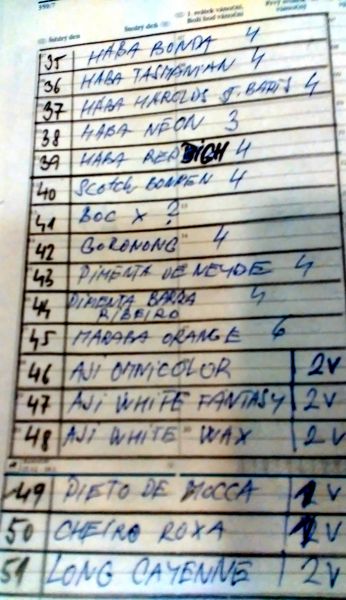 Štědrý den
Štědrý den
1. svátek vánoční,
Boží hod vánoční
35 HABA BONDA 4
36 HABA TASMANIAN 4
37 HABA HAROLDS ST. BARTS 4
38 HABA NEON 3
39 HABA RED 4
40 Scotch BONNEN 4
41 BOC X ?
42 GORONONG 4
43 PIMENTA DE NEYDE 4
44 PIMENTA BARRA RIBEIRO 4
45 MARABA ORANGE 6
46 AJI OMNICOLOR 2V
47 AJI WHITE FANTASY 2V
48 AJI WHITE WAX 2V
49 PIETO DE MOCCA 2V
50 CHEIRO ROXA 2V
51 LONG CAYENNE 2V